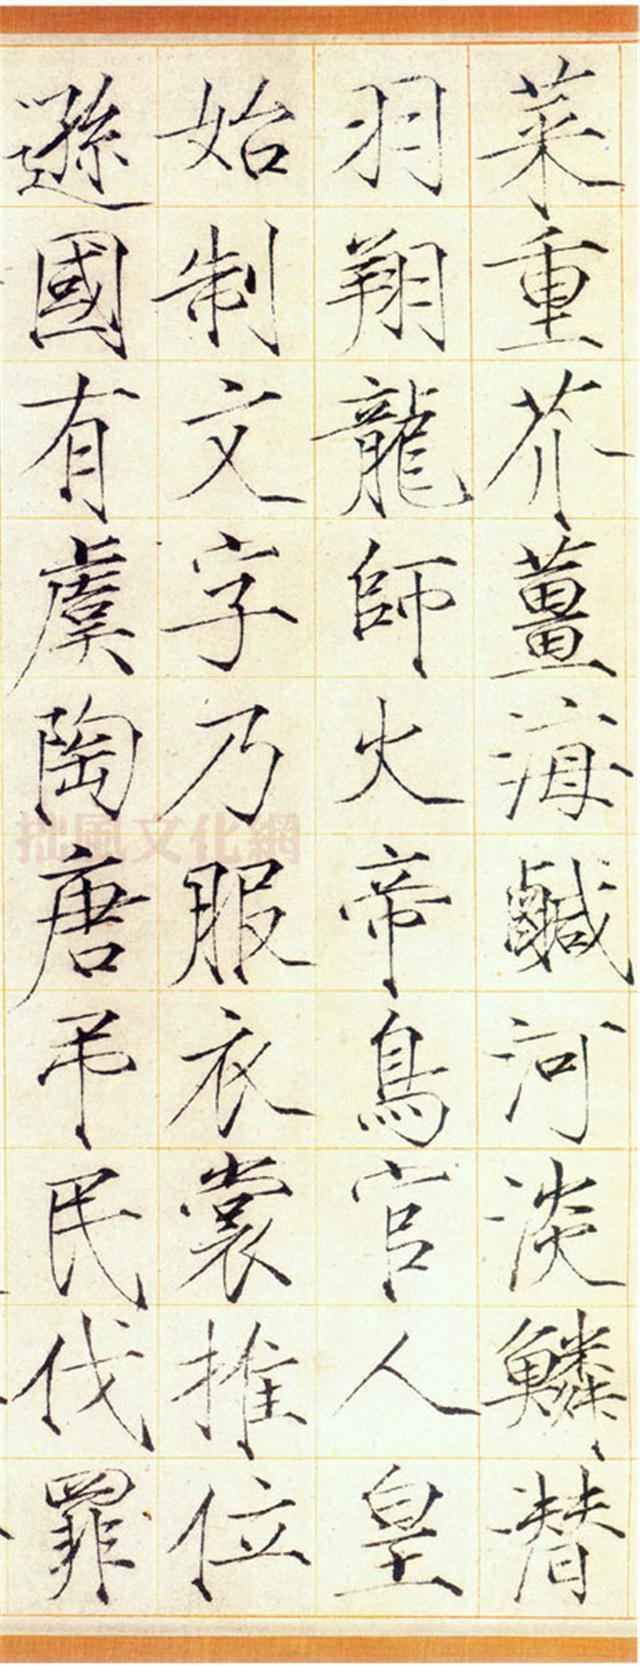 菜重芥薑海鹹河淡鱗潛
羽翔龍師火帝鳥官人皇
始制文字乃服衣裳推位
遜國有虞陶唐弔民伐罪
拙風文化網